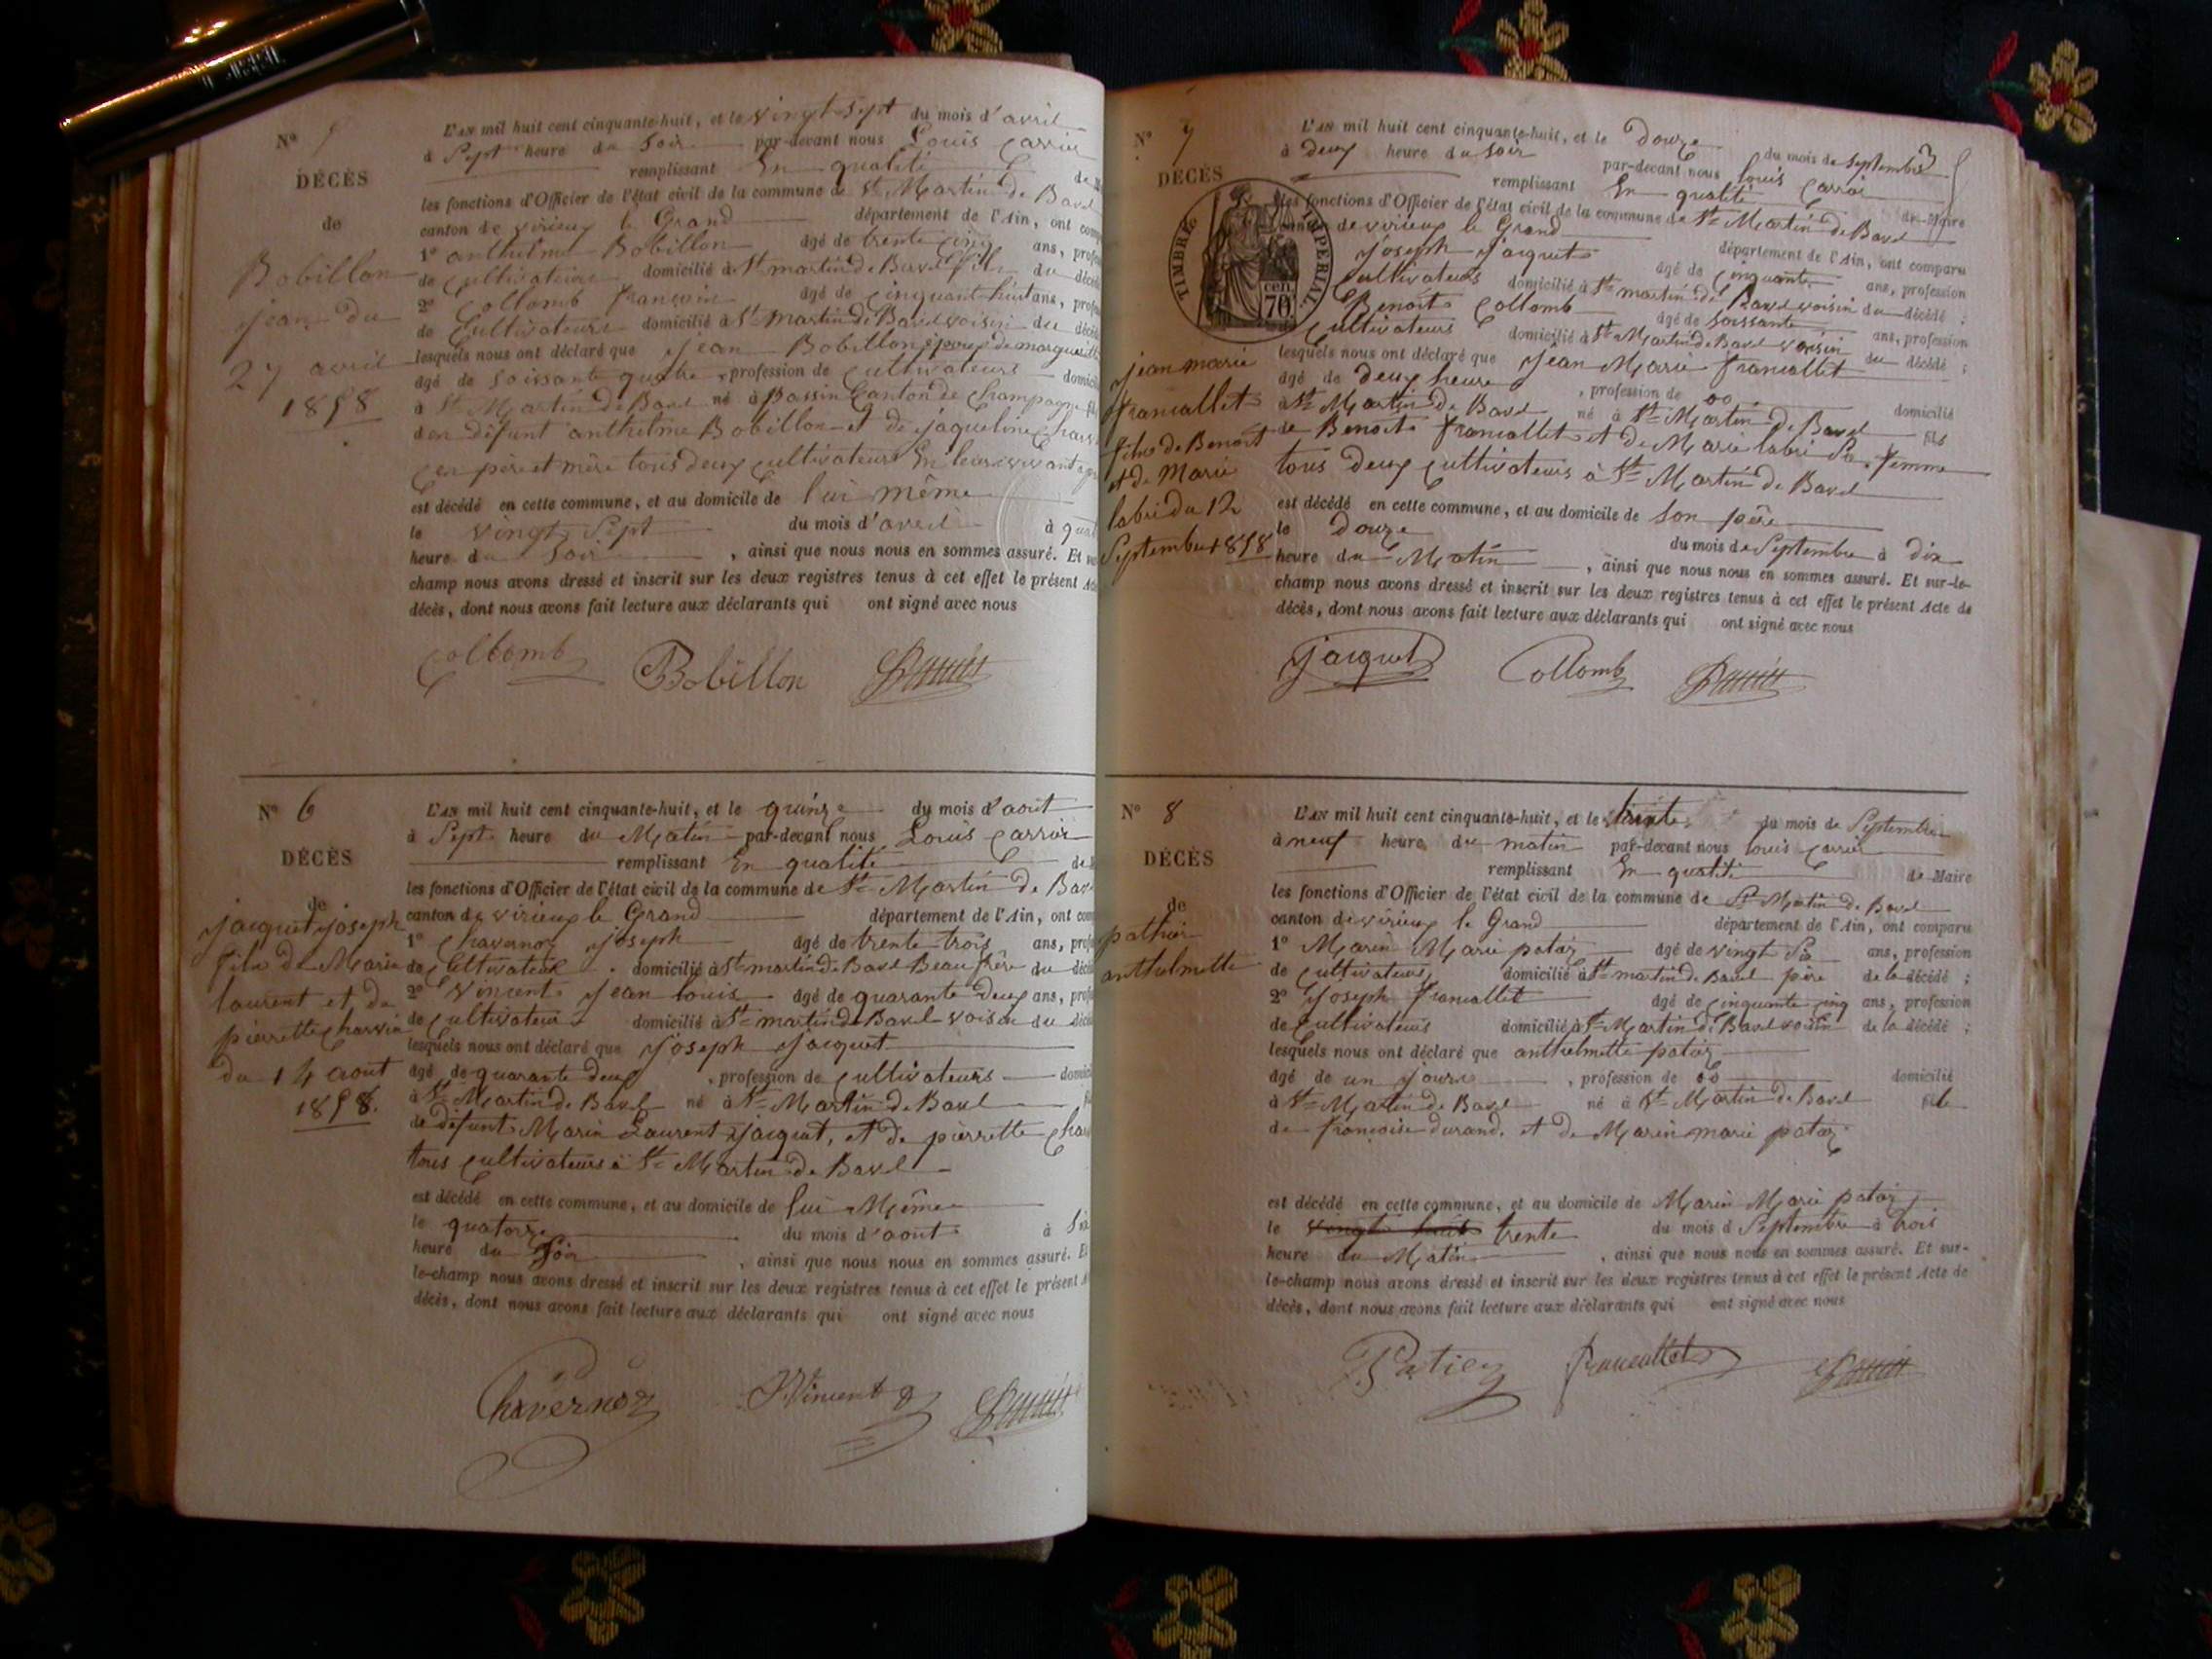 N° 5
DÉCÈS
de
Bobillon
jean du
27 avril
1858
L'AN mil huit cent cinquante-huit, et le vingt sept du mois d'avril
à Sept heure du Soir par-devant nous Louis Carrier
remplissant En qualité de
les fonctions d'Officier de l'état civil de la commune de St Martin de Bavel
canton de virieux le Grand département de l'Ain, ont
1° anthelme Bobillon âgé de trente cinq ans,
de Cultivateurs domicilié à St martin de Bavel fils du
2° Collomb françois âgé de cinquant huit ans,
de Cultivateurs domicilié à St Martin de Bavel voisin du
lesquels nous ont déclaré que Jean Bobillon époux de marguerite
âgé de soissante quatre, profession de Cultivateurs
à St Martin de Bavel né à Passin Canton de Champagne
der défunt anthelme Bobillon et de jaqueline
Ces père et mère tous deux cultivateurs En leur vivant
est décédé en cette commune, et au domicile de lui même
le vingt Sept du mois d'avril à
heure du Soir, ainsi que nous nous en sommes assuré. Et
champ nous avons dressé et inscrit sur les deux registres tenus à cet effet le présent
décès, dont nous avons fait lecture aux déclarants qui ont signé avec nous
Collomb Bobillon
N° 6
DÉCÈS
de
jacquet joseph
fils de Marin
laurent et de
pierrette charvin
du 14 août
1858.
L'AN mil huit cent cinquante-huit, et le quinze du mois d'août
à Sept heure du Matin par-devant nous Louis Carrier
remplissant En qualité de
les fonctions d'Officier de l'état civil de la commune de St Martin de
canton de virieux le Grand département de l'Ain, ont
1° Chavernoz joseph âgé de trente trois ans,
de Cultivateur domicilié à St martin de Bavel Beau frère du
2° Vincent Jean louis âgé de quarante deux ans,
de Cultivateur domicilié à St martin de Bavel voisin du
lesquels nous ont déclaré que Joseph Jacquet
âgé de quarante deux, profession de Cultivateurs
à St Martin de Bavel né à St Martin de Bavel
de défunt Marin Laurent Jacquet, et de pierrette
tous cultivateurs à St Martin de Bavel
est décédé en cette commune, et au domicile de lui Même
le quatorze du mois d'août à
heure du Soir, ainsi que nous nous en sommes assuré.
le-champ nous avons dressé et inscrit sur les deux registres tenus à cet effet le présent
décès, dont nous avons fait lecture aux déclarants qui ont signé avec nous
Chavernoz Vincent
N° 7
DÉCÈS
TIMBRE IMPERIAL
70 cen.
jean marie
francallet
fils de Benoit
et de Marie
labri du 12
Septembre 1858
L'AN mil huit cent cinquante-huit, et le douze du mois de septembre
à deux heure du soir par-devant nous louis Carrier
remplissant En qualité de Maire
les fonctions d'Officier de l'état civil de la commune de St Martin de Bavel
de virieux le Grand département de l'Ain, ont comparu
Joseph Jacquet âgé de cinquante ans, profession
Cultivateurs domicilié à St martin de Bavel voisin du décédé ;
Benoit Collomb âgé de soissante ans, profession
Cultivateurs domicilié à St Martin de Bavel voisin du décédé ;
lesquels nous ont déclaré que Jean Marie francallet
âgé de deux heure, profession de oo domicilié
à St Martin de Bavel né à St Martin de Bavel fils
de Benoit francallet et de Marie labri Sa femme
tous deux cultivateurs à St Martin de Bavel
est décédé en cette commune, et au domicile de son père
le douze du mois de Septembre à dix
heure du Matin, ainsi que nous nous en sommes assuré. Et sur-le-
champ nous avons dressé et inscrit sur les deux registres tenus à cet effet le présent Acte de
décès, dont nous avons fait lecture aux déclarants qui ont signé avec nous
Jacquet Collomb
N° 8
DÉCÈS
de
anthelmette
L'AN mil huit cent cinquante-huit, et le trente du mois de Septembre
à neuf heure du matin par-devant nous louis Carrier
remplissant En qualité de Maire
les fonctions d'Officier de l'état civil de la commune de St Martin de Bavel
canton de virieux le Grand département de l'Ain, ont comparu
1° Marin Marie patiez âgé de vingt Six ans, profession
de Cultivateurs domicilié à St martin de Bavel père de la décédé ;
2° Joseph francallet âgé de cinquante cinq ans, profession
de Cultivateurs domicilié à St Martin de Bavel voisin de la décédé ;
lesquels nous ont déclaré que anthelmette patiez
âgé de un jours, profession de oo domicilié
à St Martin de Bavel né à St Martin de Bavel
de françoise durand, et de Marin marie patiez
est décédé en cette commune, et au domicile de Marin Marie patiez
le vingt huit trente du mois d Septembre à trois
heure du Matin, ainsi que nous nous en sommes assuré. Et sur-
le-champ nous avons dressé et inscrit sur les deux registres tenus à cet effet le présent Acte de
décès, dont nous avons fait lecture aux déclarants qui ont signé avec nous
Patiez francallet